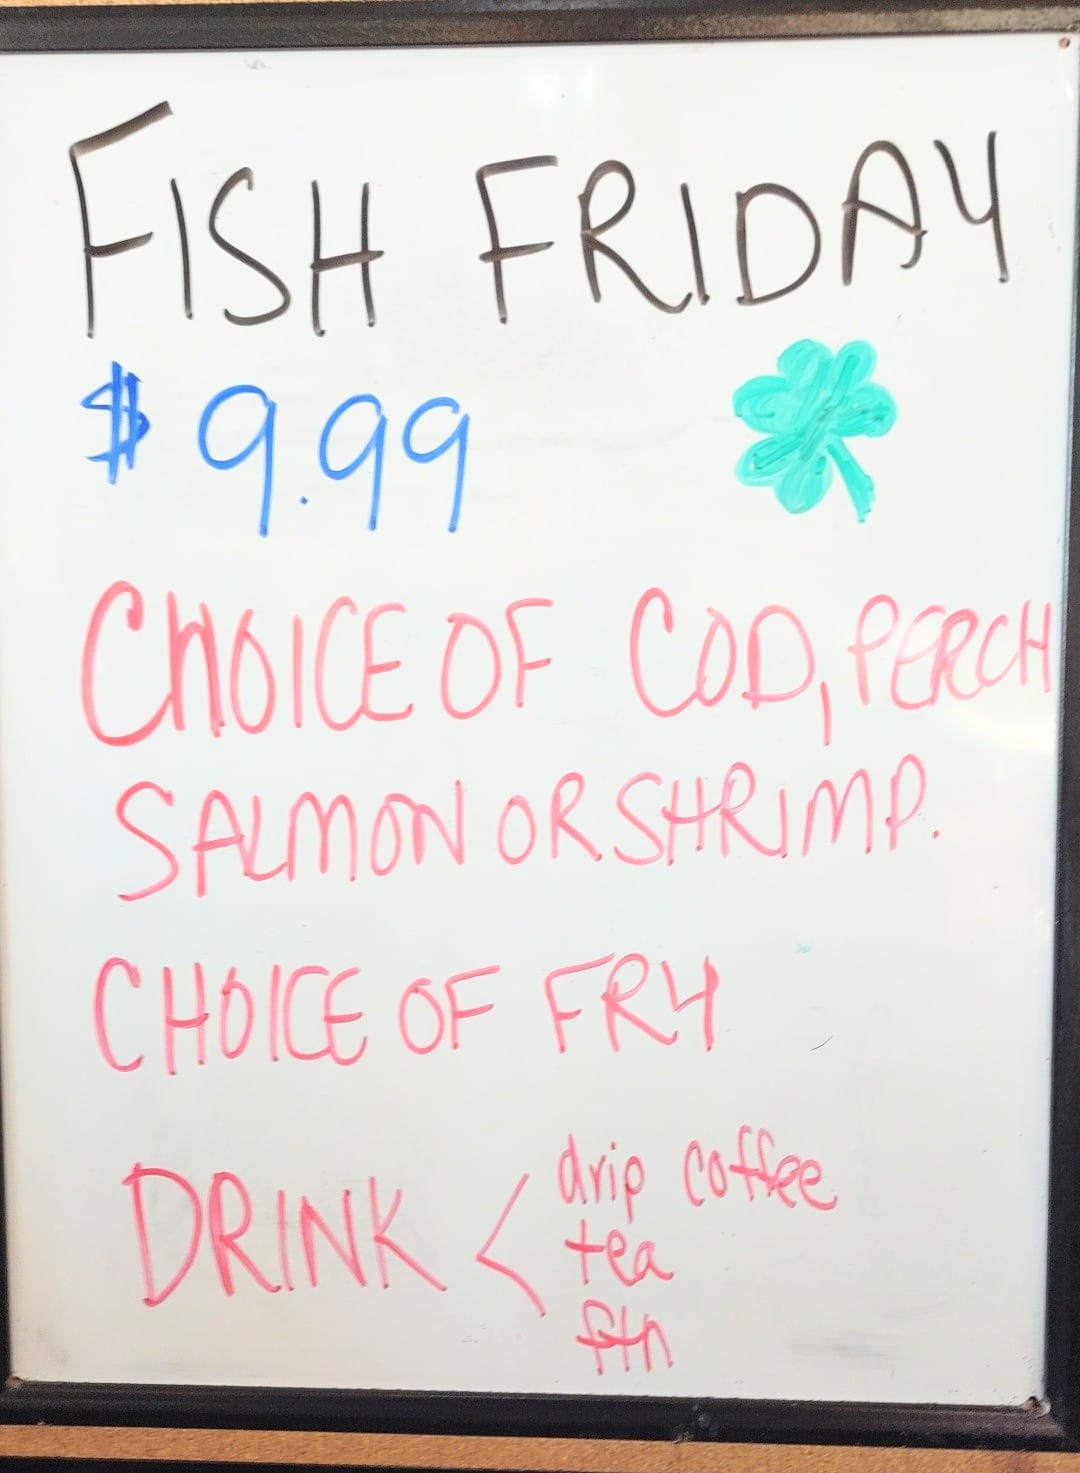 FISH FRIDAY
$9.99
CHOICE OF COD, PERCH
SALMON OR SHRIMP.
CHOICE OF FRY
DRINK < drip coffee
tea
ftn